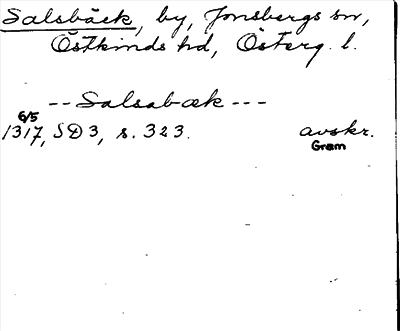 Salsbäck, by, Jonsbergs sn,
Östkinds hd, Österg. l.
-- Salsabæk ---
6/5
1317, SD 3, s. 323. avskr.
Gram